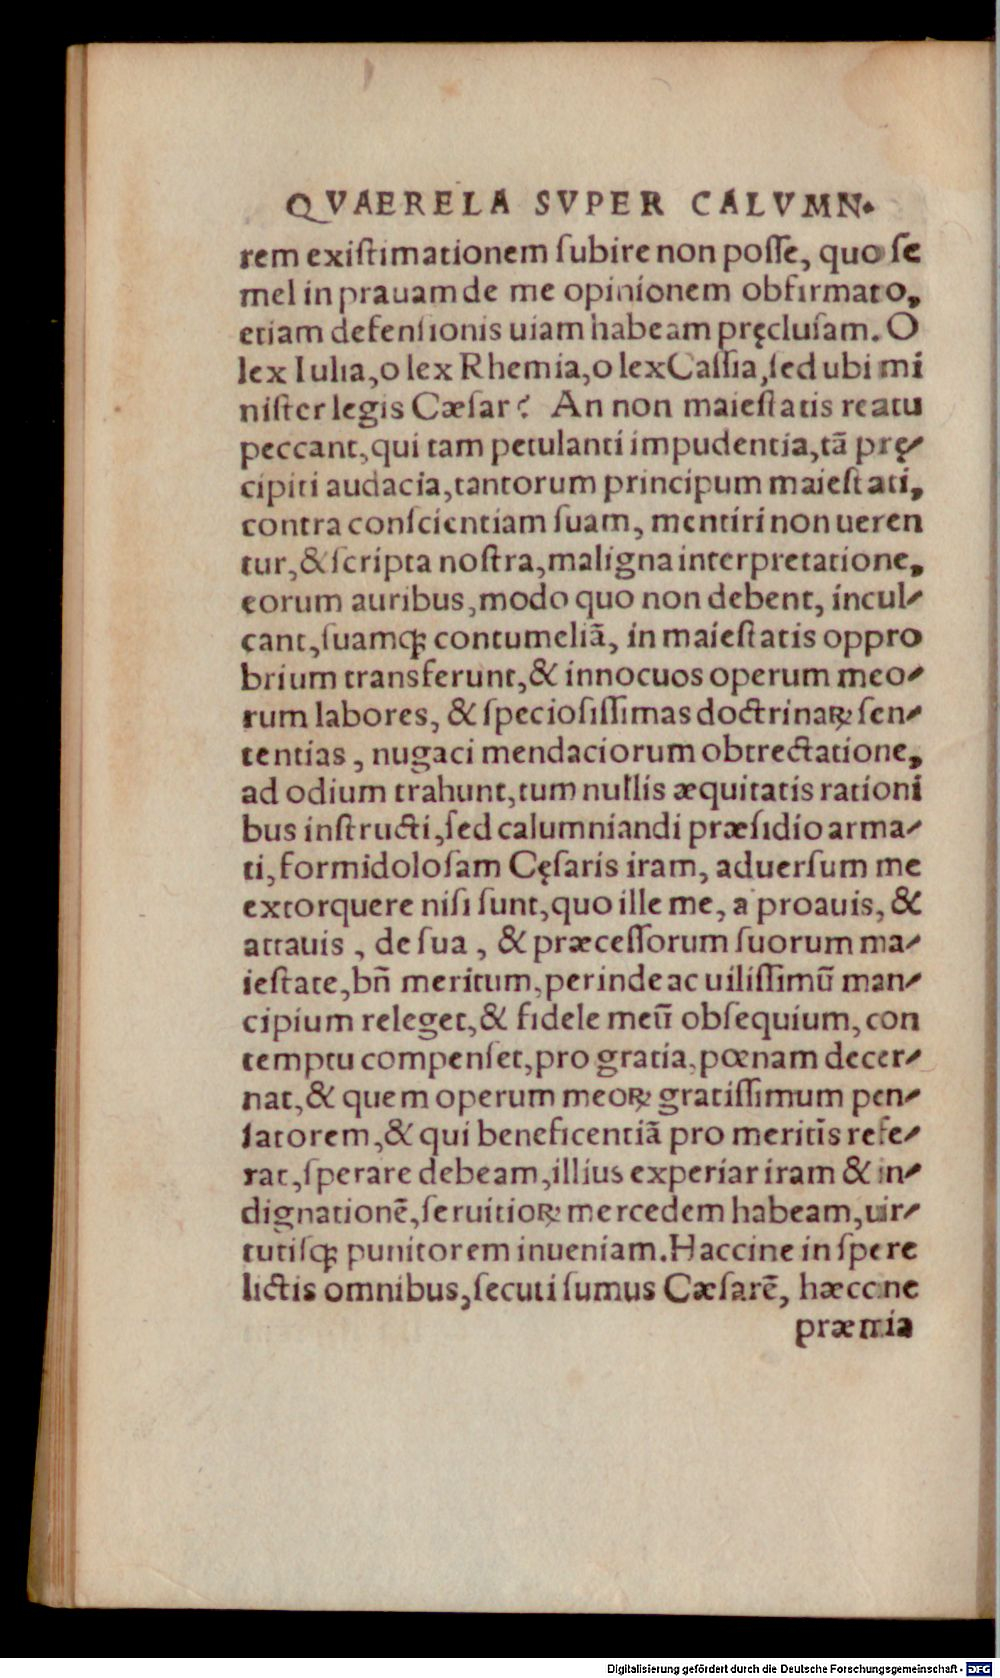 QVAERELA SVPER CALVMN.
rem exiſtimationem ſubire non poſſe, quo ſe
mel in prauam de me opinionem obfirmato,
etiam defenſionis uiam habeam pręcluſam. O
lex Iulia, o lex Rhemia, o lex Caſſia, ſed ubi mi
niſter legis Cæſar? An non maieſtatis reatu
peccant, qui tam petulanti impudentia, tã prę-
cipiti audacia, tantorum principum maieſtati,
contra conſcientiam ſuam, mentiri non ueren
tur, & ſcripta noſtra, maligna interpretatione,
eorum auribus, modo quo non debent, incul-
cant, ſuamqꝫ contumeliã, in maieſtatis oppro
brium transferunt, & innocuos operum meo-
rum labores, & ſpecioſiſſimas doctrinaꝝ ſen-
tentias, nugaci mendaciorum obtrectatione,
ad odium trahunt, tum nullis æquitatis rationi
bus inſtructi, ſed calumniandi præſidio arma-
ti, formidoloſam Cęſaris iram, aduerſum me
extorquere niſi ſunt, quo ille me, a proauis, &
attauis, de ſua, & præceſſorum ſuorum ma-
ieſtate, bñ meritum, perinde ac uiliſſimũ man-
cipium releget, & fidele meũ obſequium, con
temptu compenſet, pro gratia, pœnam decer-
nat, & quem operum meoꝝ gratiſſimum pen-
ſatorem, & qui beneficentiã pro meritis refe-
rat, ſperare debeam, illius experiar iram & in-
dignationẽ, ſeruitioꝝ mercedem habeam, uir-
tutiſqꝫ punitorem inueniam. Haccine in ſpe re
lictis omnibus, ſecuti ſumus Cæſarẽ, hæccine
præmia
Digitalisierung gefördert durch die Deutsche Forschungsgemeinschaft - DFG